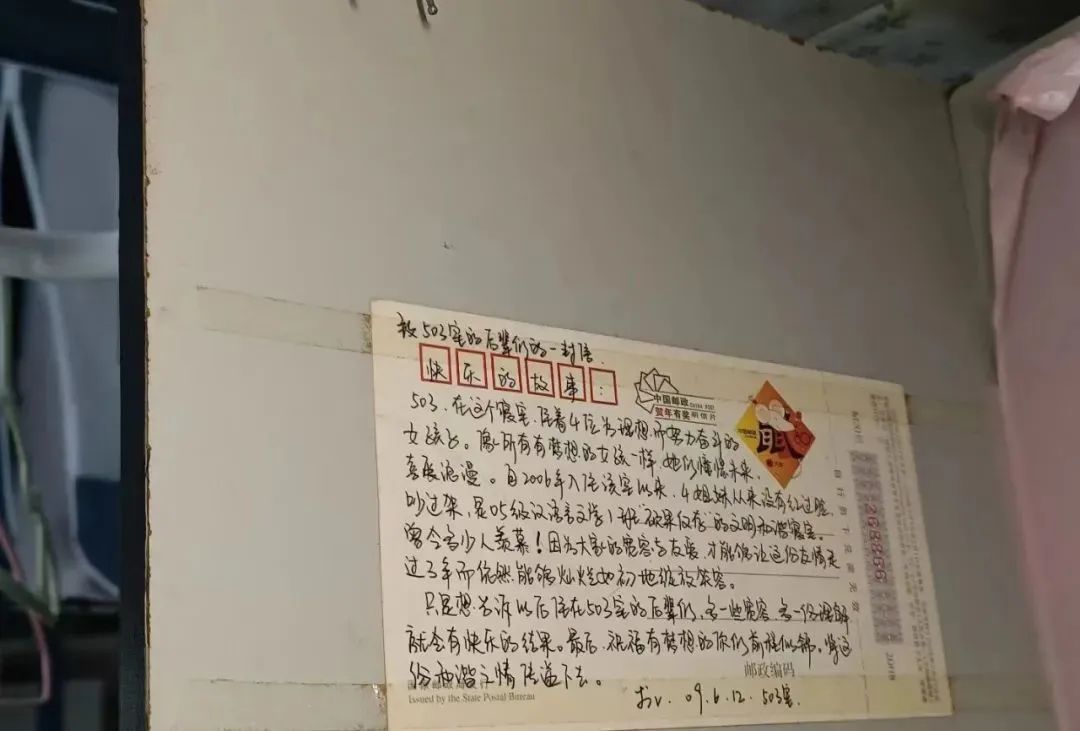 致503室的后辈们的一封信.
快乐的故事:
中国邮政
CHINA POST
贺年有奖 明信片
503.在这个寝室.住着4位为理想而努力奋斗的
女孩。像所有有梦想的女孩一样.她们憧憬未来.
喜爱浪漫。自2006年入住该室以来.4姐妹从来没有红过脸.
吵过架.是05级汉语言文学1班"硕果仅存"的文明和谐寝室。
曾令多少人羡慕!因为大家的宽容与友爱.才能够让这份友情走
过3年而依然能够灿烂如初地绽放笑容。
只是想告诉以后住在503室的后辈们.多一些宽容.多一份理解
就会有快乐的结果。最后.祝福有梦想的你们前程似锦。将这
份和谐之情传递下去。
邮政编码
国家邮政局发行
Issued by the State Postal Bureau
09.6.12. 503室.
268866